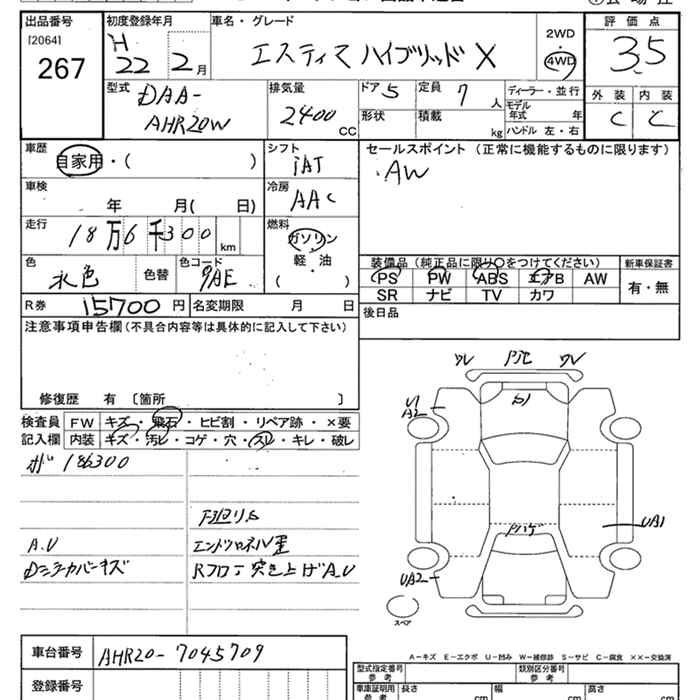 出品番号 初度登録年月 車名・グレード 2WD 評価点
[2064] H エスティマ ハイブリッド X ・ 3.5
267 22 2月 4WD 外装 内装
C C
型式 DAA- 排気量 ドア 5 定員 7人 ディーラー・並行
AHR20W 2400 CC 形状 積載 kg モデル年式 年
ハンドル 左・右
車歴 シフト セールスポイント (正常に機能するものに限ります)
自家用・( ) IAT AW
車検 冷房
年 月( 日) AAC
走行 燃料
18万6千300 km ガソリン
軽・油
( )
装備品(純正品に限り○をつけてください) 新車保証書
色 色替 色コード PS PW ABS エアB AW 有・無
水色 SR ナビ TV カワ
R券 15700円 名変期限 月 日 後日品
注意事項申告欄(不具合内容等は具体的に記入して下さい)
修復歴 有 〔箇所 〕
検査員 FW キズ・飛石・ヒビ割・リペア跡・×要
記入欄 内装 キズ・汚レ・コゲ・穴・スレ・キレ・破レ
186300
下廻りS
A.U
Rフロア突き上げA.U
ワレ ワレ
U1
A2
UA1
UA2
スペア
A-キズ E-エクボ U-凹み W-補修跡 S-サビ C-腐食 ××-交換済
車台番号 AHR20-7045709
登録番号
型式指定番号 参考 類別区分番号 参考
車庫証明用 参考 長さ cm 幅 cm 高さ cm